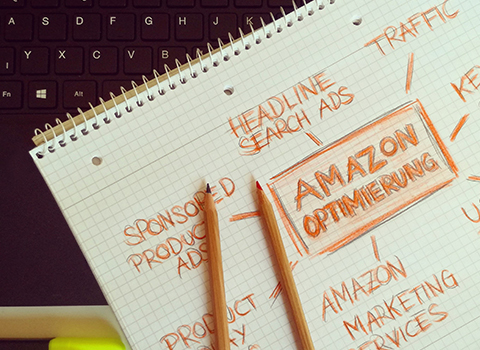 A S D F G H J K
Y X C V B
Fn Alt
TRAFFIC
HEADLINE
SEARCH ADS
KE
AMAZON
OPTIMIERUNG
SPONSORED
PRODUCT
ADS
AMAZON
MARKETING
SERVICES
PRODUCT